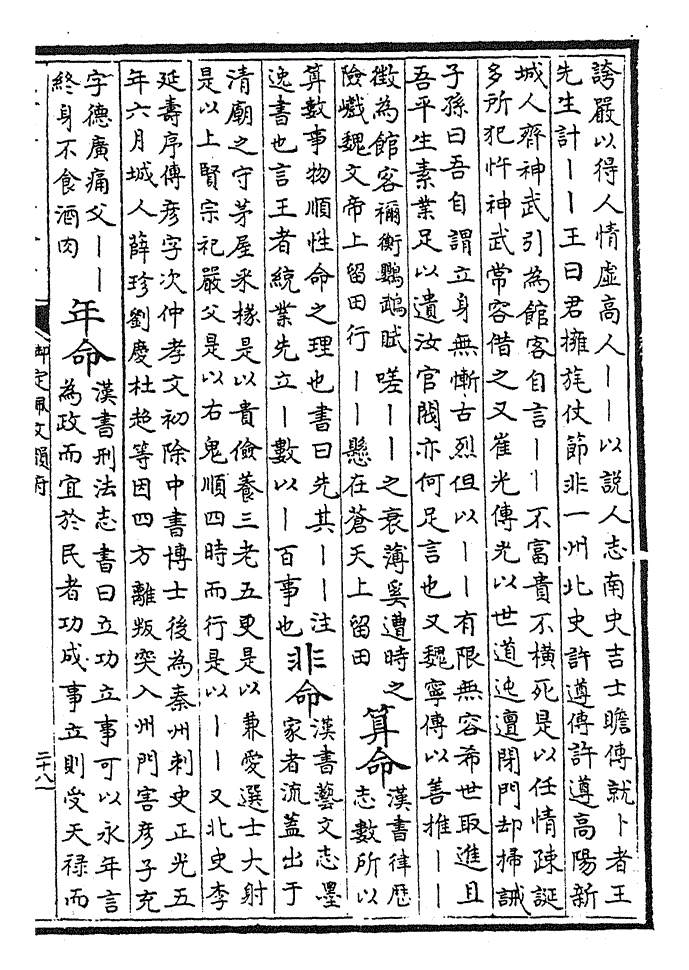 誇嚴以得人情虛高人丨丨以說人志南史吉士瞻傳就卜者王
先生計丨丨王曰君擁旄仗節非一州北史許遵傳許遵高陽新
城人齊神武引為館客自言丨丨不富貴不橫死是以任情疎誕
多所犯忤神武常容借之又崔光傳光以世道迍邅閉門却掃誡
子孫曰吾自謂立身無慚古烈但以丨丨有限無容希世取進且
吾平生素業足以遺汝官閥亦何足言也又魏寧傳以善推丨丨
徵為館客禰衡鸚鵡賦嗟丨丨之衰薄奚遭時之
險巇魏文帝上留田行丨丨懸在蒼天上留田
算命
漢書律厯
志數所以
算數事物順性命之理也書曰先其丨丨注
逸書也言王者統業先立丨數以丨百事也
非命
漢書藝文志墨
家者流蓋出于
清廟之守茅屋采椽是以貴儉養三老五更是以兼愛選士大射
是以上賢宗祀嚴父是以右鬼順四時而行是以丨丨又北史李
延壽序傳彦字次仲孝文初除中書博士後為秦州刺史正光五
年六月城人薛珍劉慶杜超等因四方離叛突入州門害彦子充
字德廣痛父丨丨
終身不食酒肉
年命
漢書刑法志書曰立功立事可以永年言
為政而宜於民者功成事立則受天禄而
御定佩文韻府
二十八